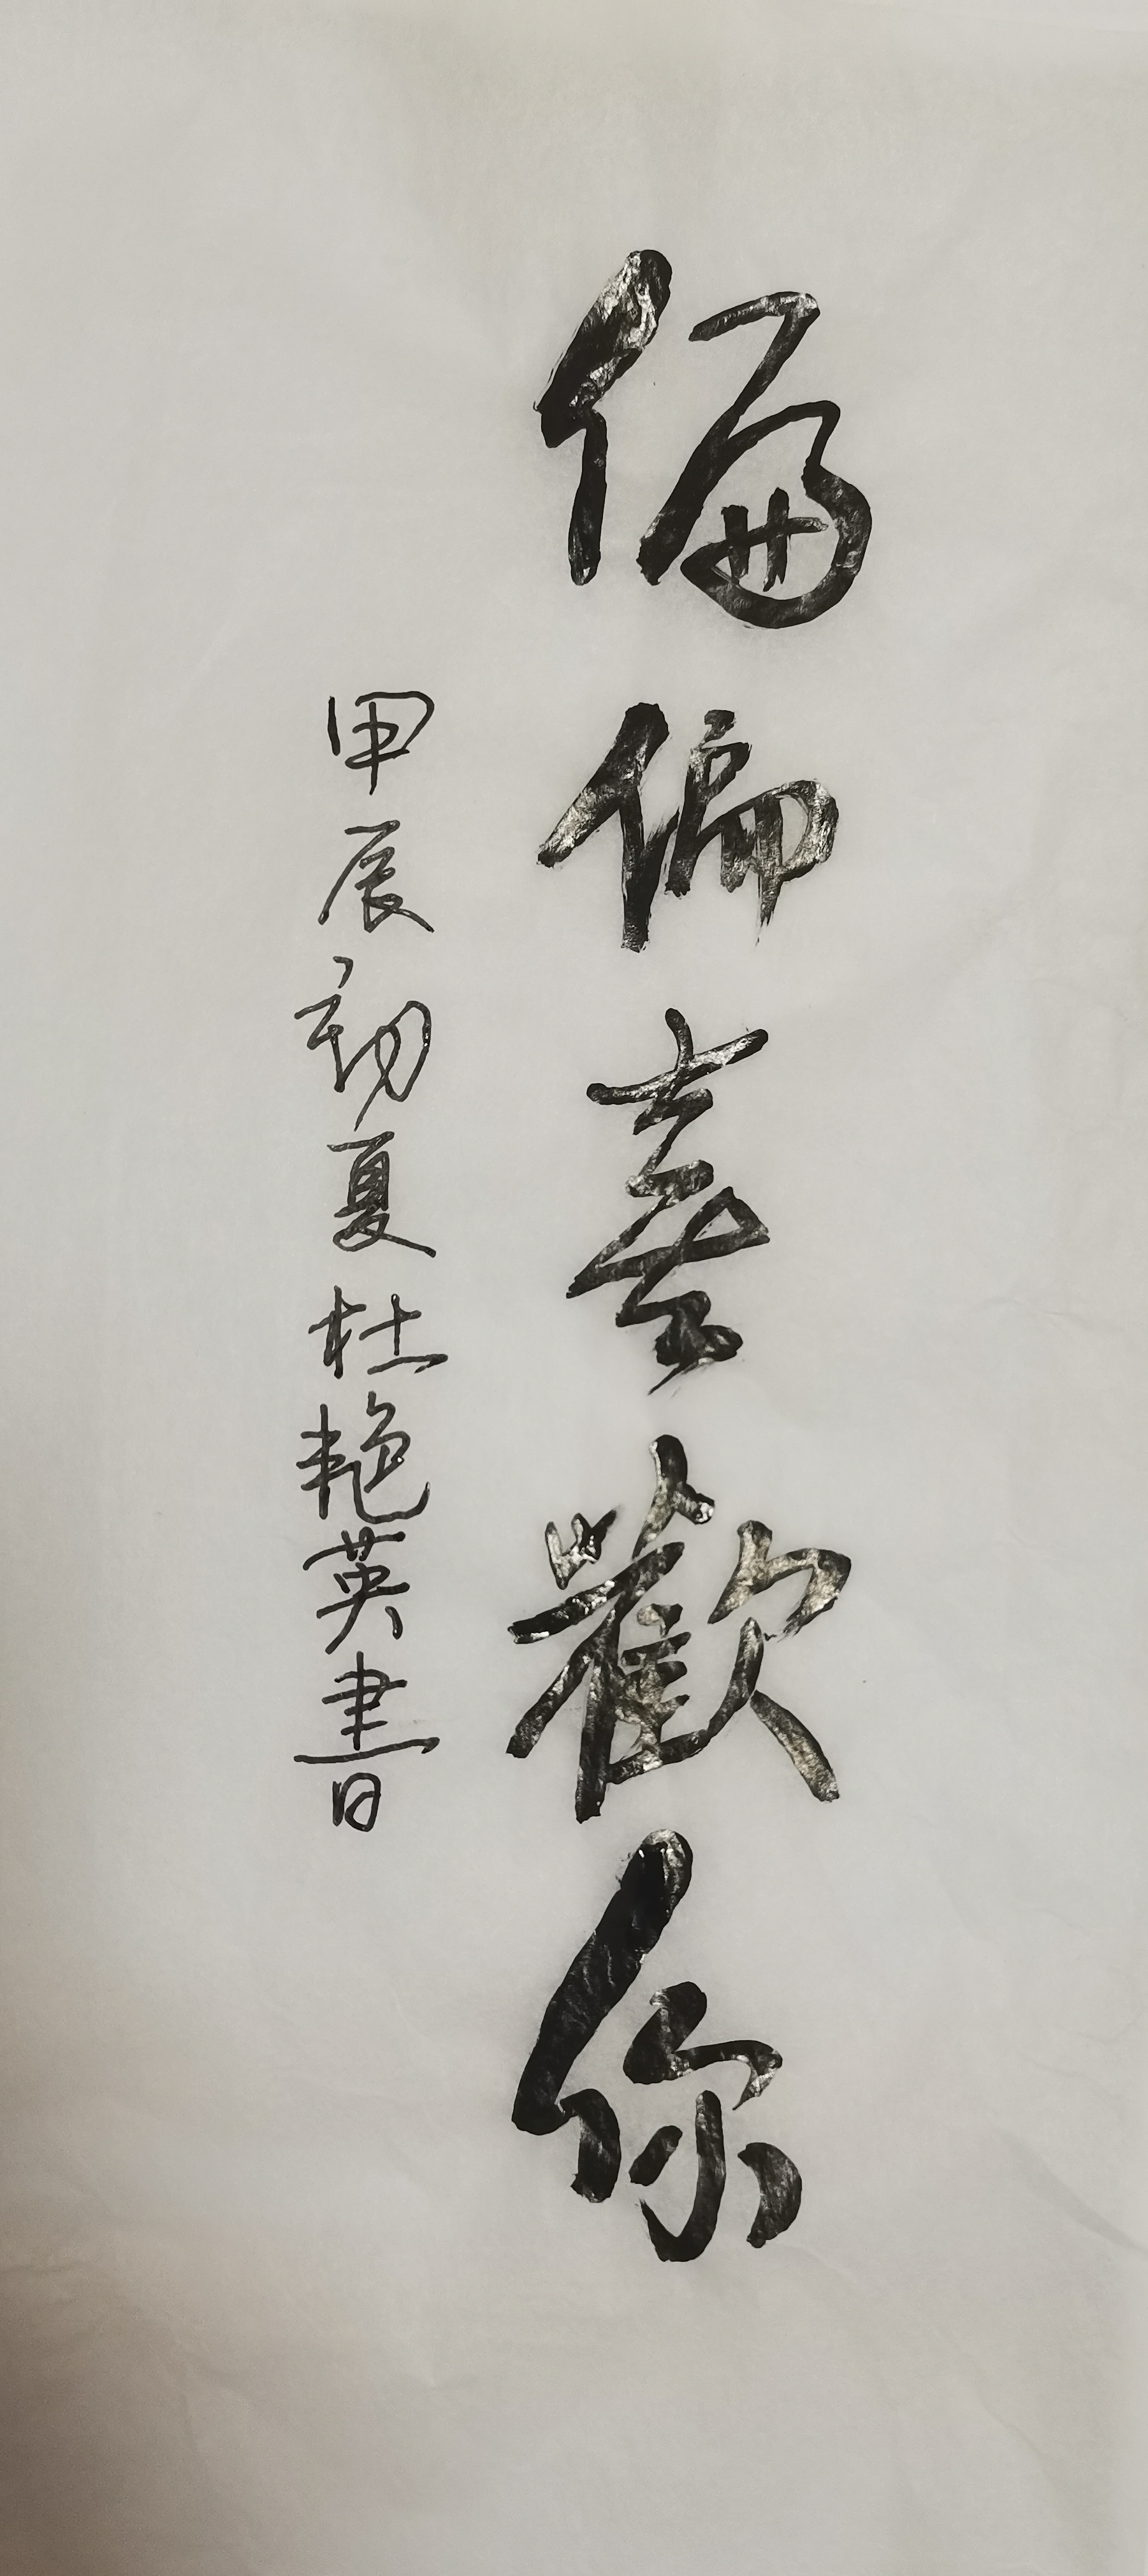 偏偏喜歡你
甲辰初夏杜艳英書